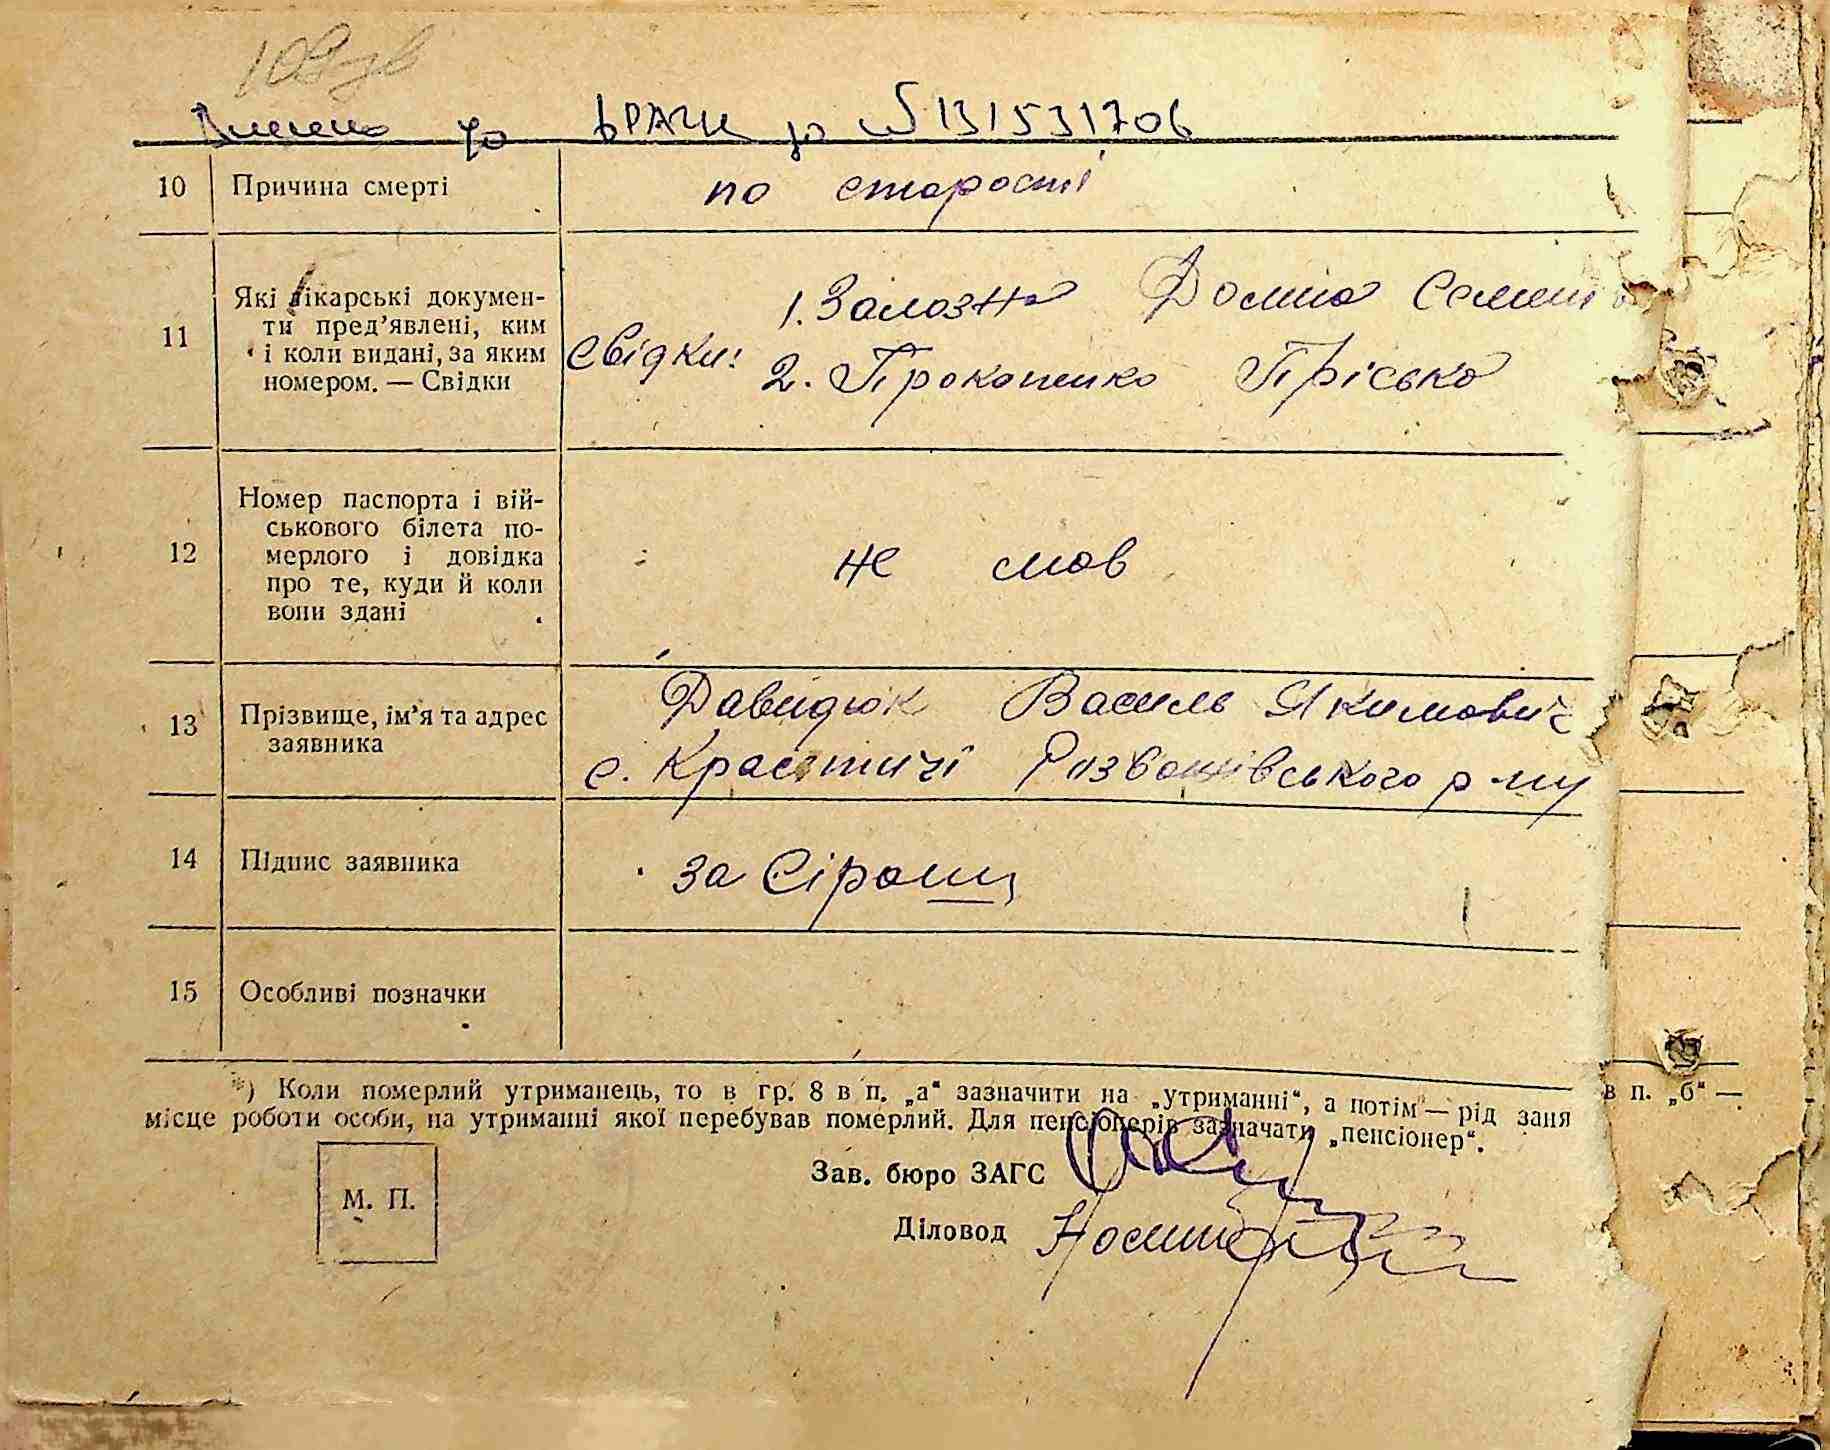 Внесено до ДРАЦС за № 131531706
10 Причина смерті по старості
11 Які лікарські докумен-
ти пред’явлені, ким
і коли видані, за яким
номером. — Свідки
Свідки: 1. Залозна Домна
2. Прокопенко Прісько
12 Номер паспорта і вій-
ськового білета по-
мерлого і довідка
про те, куди й коли
вони здані
не мав
13 Прізвище, ім’я та адрес
заявника
Давидюк Василь Якимович
с. Красятичі Розважівського р-ну
14 Підпис заявника за
15 Особливі позначки
*) Коли померлий утриманець, то в гр. 8 в п. „а“ зазначити на „утриманні“, а потім — рід заня в п. „б“ —
місце роботи особи, на утриманні якої перебував померлий. Для пенсіонерів зазначати „пенсіонер“.
Зав. бюро ЗАГС
М. П.
Діловод